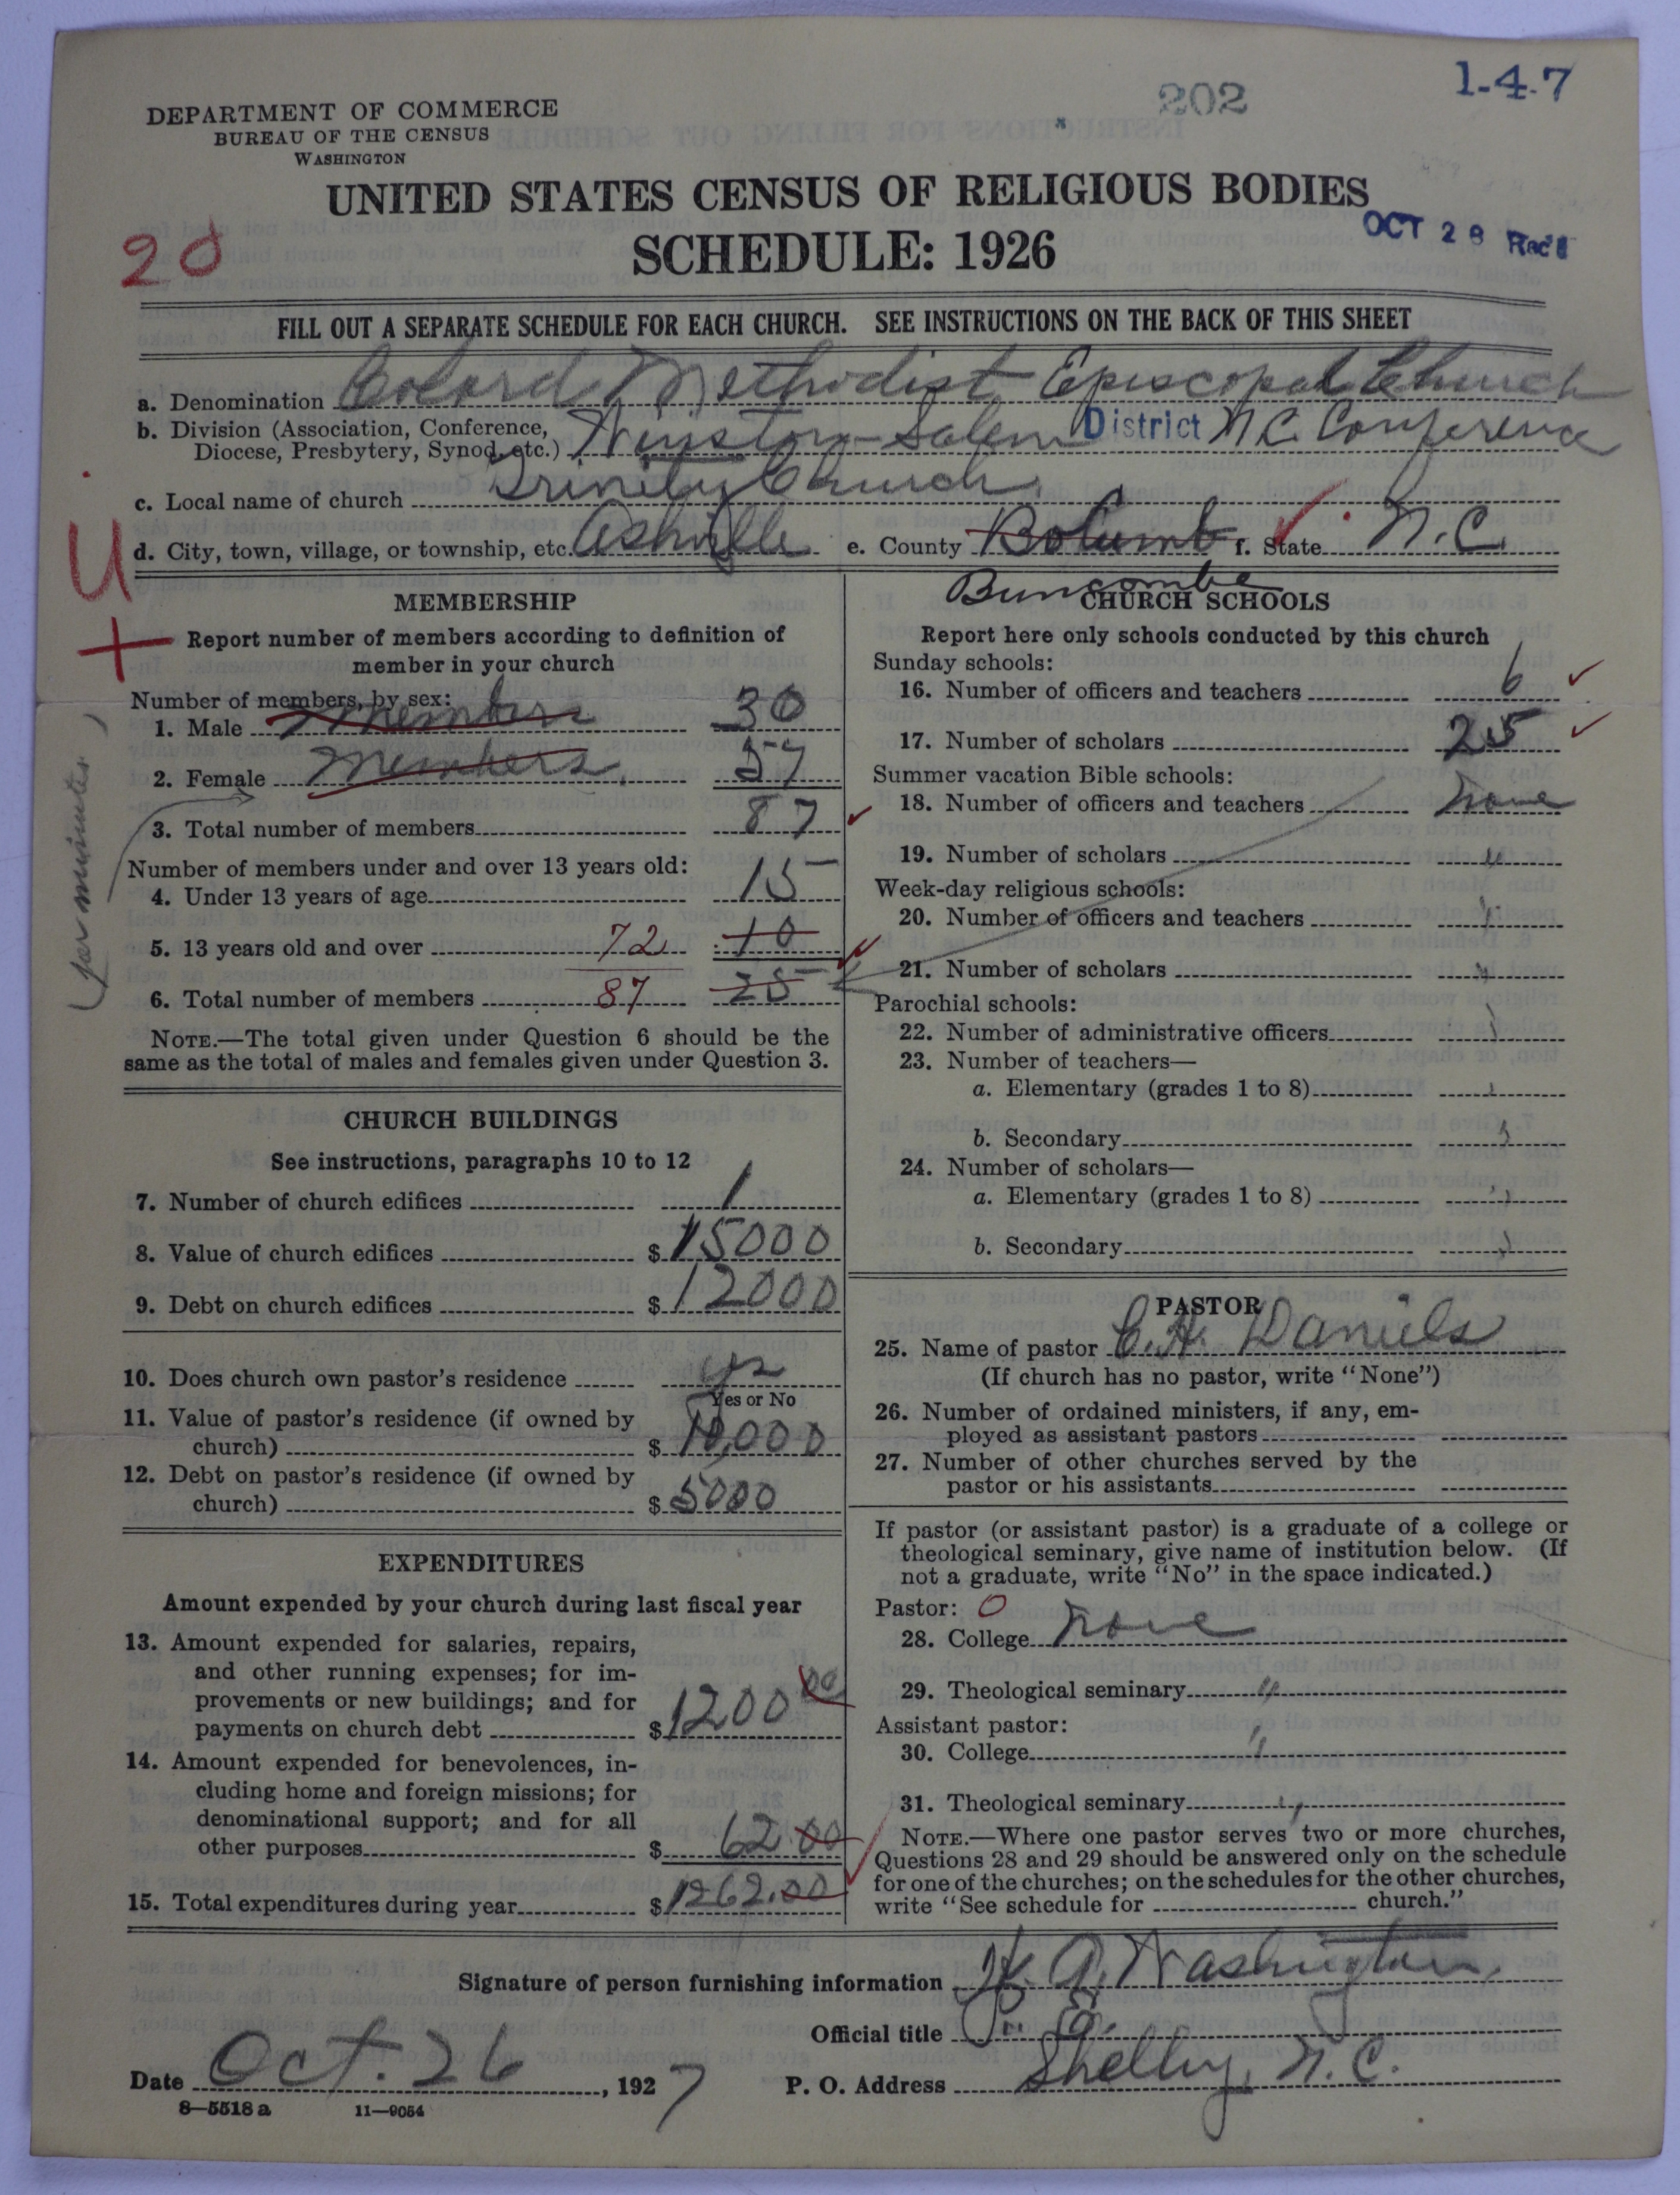 202
1-4-7
DEPARTMENT OF COMMERCE
BUREAU OF THE CENSUS
WASHINGTON
UNITED STATES CENSUS OF RELIGIOUS BODIES
SCHEDULE: 1926
OCT 28 Rec'd
20
FILL OUT A SEPARATE SCHEDULE FOR EACH CHURCH. SEE INSTRUCTIONS ON THE BACK OF THIS SHEET
a. Denomination Colord Methodist Episcopal Church
b. Division (Association, Conference, Diocese, Presbytery, Synod, etc.) Winston-Salem District N.C. Conference
c. Local name of church Trinity Church
d. City, town, village, or township, etc. Ashville e. County Bolumb f. State N.C.
Buncombe
U
+
per minutes
MEMBERSHIP
Report number of members according to definition of
member in your church
Number of members, by sex:
1. Male members 30
2. Female Members 57
3. Total number of members 87
Number of members under and over 13 years old:
4. Under 13 years of age 15
5. 13 years old and over 72 10
6. Total number of members 87 25
NOTE.—The total given under Question 6 should be the
same as the total of males and females given under Question 3.
CHURCH BUILDINGS
See instructions, paragraphs 10 to 12
7. Number of church edifices 1
8. Value of church edifices $15000
9. Debt on church edifices $12000
10. Does church own pastor's residence yes
Yes or No
11. Value of pastor's residence (if owned by
church) $10,000
12. Debt on pastor's residence (if owned by
church) $5000
EXPENDITURES
Amount expended by your church during last fiscal year
13. Amount expended for salaries, repairs,
and other running expenses; for im-
provements or new buildings; and for
payments on church debt $1200 00
14. Amount expended for benevolences, in-
cluding home and foreign missions; for
denominational support; and for all
other purposes $62.00
15. Total expenditures during year $1262.00
CHURCH SCHOOLS
Report here only schools conducted by this church
Sunday schools:
16. Number of officers and teachers 6
17. Number of scholars 25
Summer vacation Bible schools:
18. Number of officers and teachers None
19. Number of scholars "
Week-day religious schools:
20. Number of officers and teachers "
21. Number of scholars "
Parochial schools:
22. Number of administrative officers "
23. Number of teachers—
a. Elementary (grades 1 to 8) "
b. Secondary "
24. Number of scholars—
a. Elementary (grades 1 to 8) "
b. Secondary "
PASTOR
25. Name of pastor C.H. Daniels
(If church has no pastor, write "None")
26. Number of ordained ministers, if any, em-
ployed as assistant pastors
27. Number of other churches served by the
pastor or his assistants
If pastor (or assistant pastor) is a graduate of a college or
theological seminary, give name of institution below. (If
not a graduate, write "No" in the space indicated.)
Pastor: 0
28. College None
29. Theological seminary "
Assistant pastor:
30. College "
31. Theological seminary "
NOTE.—Where one pastor serves two or more churches,
Questions 28 and 29 should be answered only on the schedule
for one of the churches; on the schedules for the other churches,
write "See schedule for church."
Signature of person furnishing information H. A. Washington
Official title P. E.
Date Oct. 26, 1927 P. O. Address Shelby, N.C.
8—5518 a 11—9054